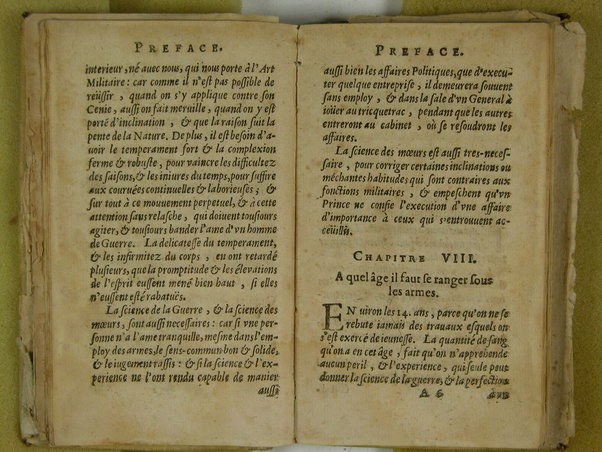 PREFACE.
interieur, né avec nous, qui nous porte à l'Art
Militaire: car comme il n'est pas possible de
reüssir, quand on s'y applique contre son
Genie, aussi on fait merveille, quand on y est
porté d'inclination, & que la raison suit la
pente de la Nature. De plus, il est besoin d'a-
uoir le temperament fort & la complexion
ferme & robuste, pour vaincre les difficultez
des saisons, & les iniures du temps, pour suffire
aux couruées continuelles & laborieuses; &
sur tout à ce mouuement perpetuel, & à cette
attention sans relasche, qui doiuent tousiours
agiter, & tousiours bander l'ame d'vn homme
de Guerre. La delicatesse du temperament,
& les infirmitez du corps, en ont retardé
plusieurs, que la promptitude & les éleuations
de l'esprit eussent mené bien haut, si elles
n'eussent esté rabatuës.
La science de la Guerre, & la science des
mœurs, sont aussi necessaires: car si vne per-
sonne n'a l'ame tranquille, mesme dans l'em-
ploy des armes, le sens-commun bon & solide,
& le iugement rassis: & si la science & l'ex-
perience ne l'ont rendu capable de manier
aussi
PREFACE.
aussi bien les affaires Politiques, que d'execu-
ter quelque entreprise, il demeurera souuent
sans employ, & dans la sale d'vn General à
ioüer au tricquetrac, pendant que les autres
entreront au cabinet, où se resoudront les
affaires.
La science des mœurs est aussi tres-neces-
saire, pour corriger certaines inclinations ou
méchantes habitudes qui sont contraires aux
fonctions militaires, & empeschent qu'vn
Prince ne confie l'execution d'vne affaire
d'importance à ceux qui s'en trouuent ac-
cëuillis.
CHAPITRE VIII.
A quel âge il faut se ranger sous
les armes.
ENuiron les 14. ans, parce qu'on ne se
rebute iamais des trauaux esquels on
s'est exercé de ieunesse. La quantité de sang
qu'on a en cet âge, fait qu'on n'apprehende
aucun peril, & l'experience, qui seule peut
donner la science de la guerre, & la perfection